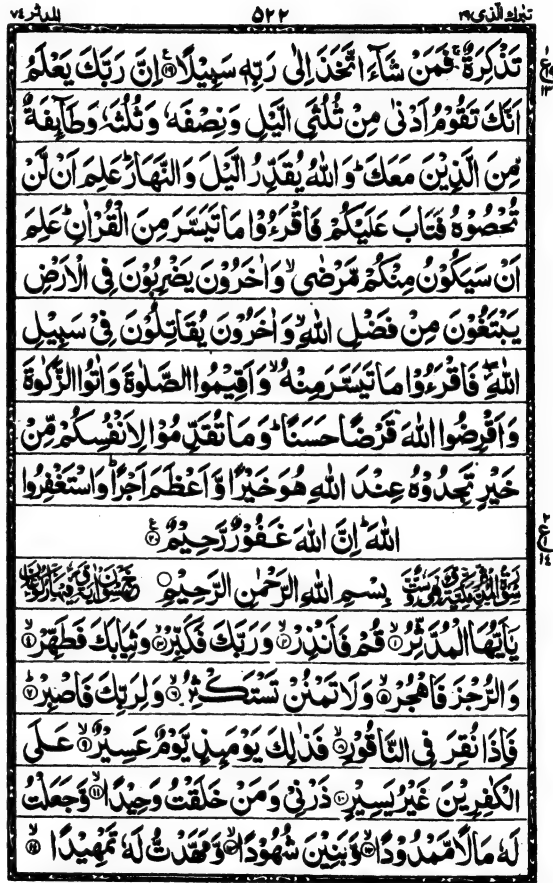 تبٰرك الذی ٢٩ ٥٢٢ المدثر ٧٤
تَذْكِرَةٌ ۚ فَمَنْ شَآءَ اتَّخَذَ اِلٰى رَبِّهٖ سَبِيْلًا ﴿١٩﴾ اِنَّ رَبَّكَ يَعْلَمُ
اَنَّكَ تَقُوْمُ اَدْنٰى مِنْ ثُلُثَيِ الَّيْلِ وَنِصْفَهٗ وَثُلُثَهٗ وَطَآئِفَةٌ
مِّنَ الَّذِيْنَ مَعَكَ ؕ وَاللّٰهُ يُقَدِّرُ الَّيْلَ وَالنَّهَارَ ؕ عَلِمَ اَنْ لَّنْ
تُحْصُوْهُ فَتَابَ عَلَيْكُمْ فَاقْرَءُوْا مَا تَيَسَّرَ مِنَ الْقُرْاٰنِ ؕ عَلِمَ
اَنْ سَيَكُوْنُ مِنْكُمْ مَّرْضٰى ۙ وَاٰخَرُوْنَ يَضْرِبُوْنَ فِى الْاَرْضِ
يَبْتَغُوْنَ مِنْ فَضْلِ اللّٰهِ ۙ وَاٰخَرُوْنَ يُقَاتِلُوْنَ فِىْ سَبِيْلِ
اللّٰهِ ۖ فَاقْرَءُوْا مَا تَيَسَّرَ مِنْهُ ۙ وَاَقِيْمُوا الصَّلٰوةَ وَاٰتُوا الزَّكٰوةَ
وَاَقْرِضُوا اللّٰهَ قَرْضًا حَسَنًا ؕ وَمَا تُقَدِّمُوْا لِاَنْفُسِكُمْ مِّنْ
خَيْرٍ تَجِدُوْهُ عِنْدَ اللّٰهِ هُوَ خَيْرًا وَّاَعْظَمَ اَجْرًا ؕ وَاسْتَغْفِرُوا
اللّٰهَ ؕ اِنَّ اللّٰهَ غَفُوْرٌ رَّحِيْمٌ ﴿٢٠﴾
بِسْمِ اللّٰهِ الرَّحْمٰنِ الرَّحِيْمِ
يٰۤاَيُّهَا الْمُدَّثِّرُ ﴿١﴾ قُمْ فَاَنْذِرْ ﴿٢﴾ وَرَبَّكَ فَكَبِّرْ ﴿٣﴾ وَثِيَابَكَ فَطَهِّرْ ﴿٤﴾
وَالرُّجْزَ فَاهْجُرْ ﴿٥﴾ وَلَا تَمْنُنْ تَسْتَكْثِرُ ﴿٦﴾ وَلِرَبِّكَ فَاصْبِرْ ﴿٧﴾
فَاِذَا نُقِرَ فِى النَّاقُوْرِ ﴿٨﴾ فَذٰلِكَ يَوْمَئِذٍ يَّوْمٌ عَسِيْرٌ ﴿٩﴾ عَلَى
الْكٰفِرِيْنَ غَيْرُ يَسِيْرٍ ﴿١٠﴾ ذَرْنِىْ وَمَنْ خَلَقْتُ وَحِيْدًا ﴿١١﴾ وَّجَعَلْتُ
لَهٗ مَالًا مَّمْدُوْدًا ﴿١٢﴾ وَّبَنِيْنَ شُهُوْدًا ﴿١٣﴾ وَّمَهَّدْتُّ لَهٗ تَمْهِيْدًا ﴿١٤﴾